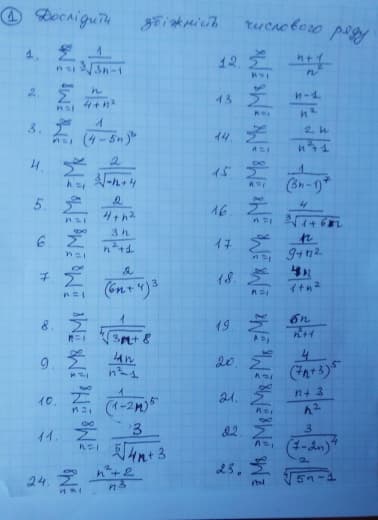 ① Дослідити збіжність числового ряду
1. ∞ ∑ n=1 1/∛(3n-1)
2. ∞ ∑ n=1 n/(4+n²)
3. ∞ ∑ n=1 1/(4-5n)³
4. ∞ ∑ n=1 2/∛(-n+4)
5. ∞ ∑ n=1 2/(4+n²)
6. ∞ ∑ n=1 3n/(n²+1)
7 ∞ ∑ n=1 2/(6n+4)³
8. ∞ ∑ n=1 1/∜(3n+8)
9. ∞ ∑ n=1 4n/(n²-1)
10. ∞ ∑ n=1 1/(1-2n)⁵
11. ∞ ∑ n=1 3/√(4n+3)
24. ∞ ∑ n=1 (n²+2)/n³
12. ∞ ∑ n=1 (n+1)/n²
13 ∞ ∑ n=1 (n-1)/n²
14. ∞ ∑ n=1 2n/(n²+1)
15 ∞ ∑ n=1 1/(3n-1)⁷
16. ∞ ∑ n=1 4/∛(1+6n)
17. ∞ ∑ n=1 n/(9+n²)
18. ∞ ∑ n=1 4n/(1+n²)
19 ∞ ∑ n=1 6n/(n²+1)
20. ∞ ∑ n=1 4/(7n+3)⁵
21. ∞ ∑ n=1 (n+3)/n²
22 ∞ ∑ n=1 3/(7-2n)⁴
23. ∞ ∑ n=1 2/√(5n-1)